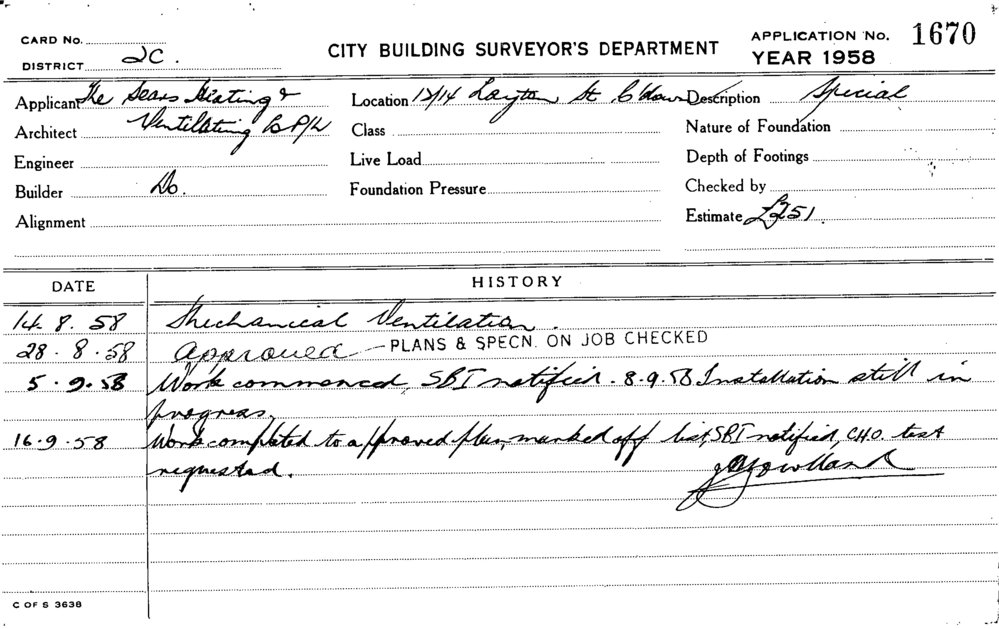 CARD No.
DISTRICT 2C.
CITY BUILDING SURVEYOR'S DEPARTMENT
APPLICATION No. 1670
YEAR 1958
Applicant The Sears Heating &
Architect Ventilating Co P/L
Engineer
Builder Do.
Alignment
Location 12/14 Layton St C'down
Class
Live Load
Foundation Pressure
Description Special
Nature of Foundation
Depth of Footings
Checked by
Estimate £251
DATE HISTORY
14. 8. 58 Mechanical Ventilation.
28. 8. 58 Approved — PLANS & SPECN. ON JOB CHECKED
5. 9. 58 Work commenced, SBI notified. 8.9.58 Installation still in
progress.
16. 9. 58 Work completed to approved plan, marked off list, SBI notified, CHO. test
requested.
C OF S 3638